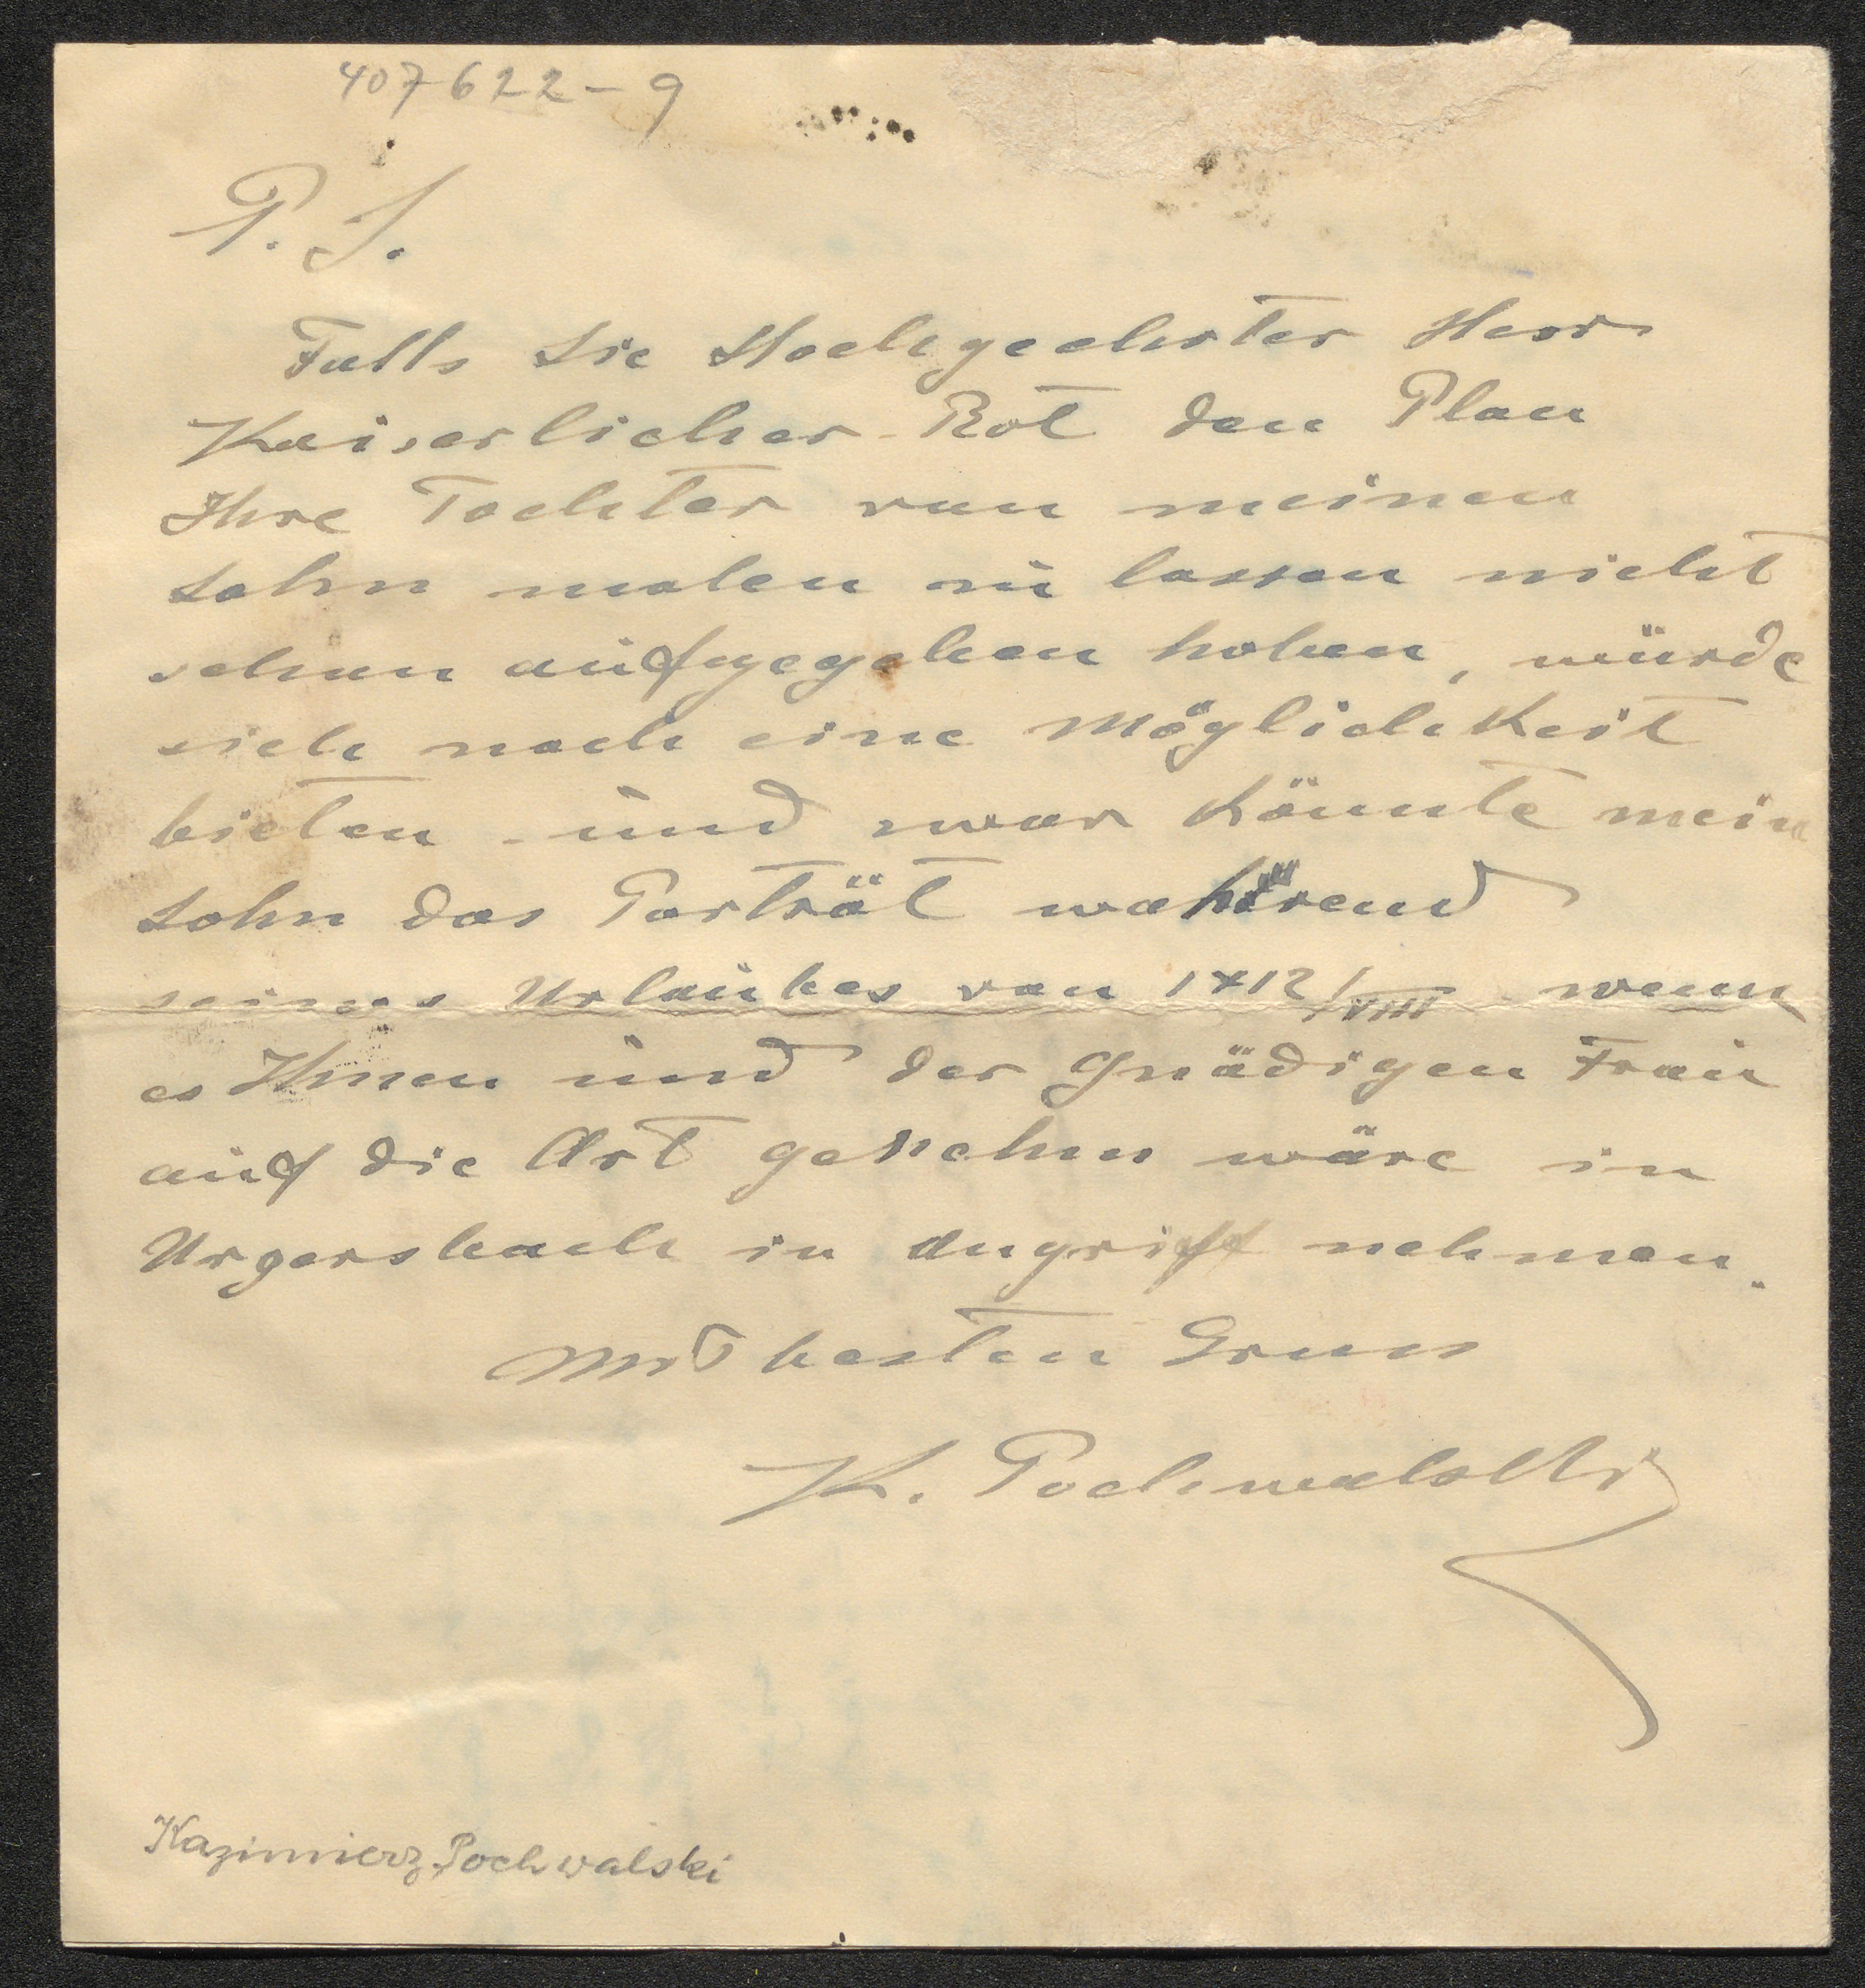 407622-9
P. S.
Falls Sie Hochgeehrter Herr
Kaiserlicher Rat den Plan
Ihre Tochter von meinen
Sohn malen zu lassen nicht
schon aufgegeben haben, würde
sich noch eine Möglichkeit
bieten - und zwar könnte mein
Sohn das Porträt während
seines Urlaubes von 1 12/VIII wenn
es Ihnen und der Gnädigen Frau
auf die Art genehm wäre in
Urgersbach in Angriff nehmen.
Mit besten Gruss
K. Pochwalski
Kazimierz Pochwalski